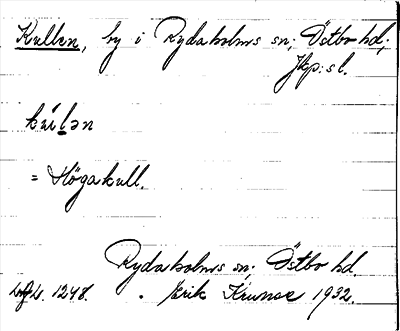 Kullen, by i Rydaholms sn; Östbo hd,
Jkp:s l.
kúlən
= Högakull.
Rydaholms sn; Östbo hd.
1248. Erik Krunse 1932.